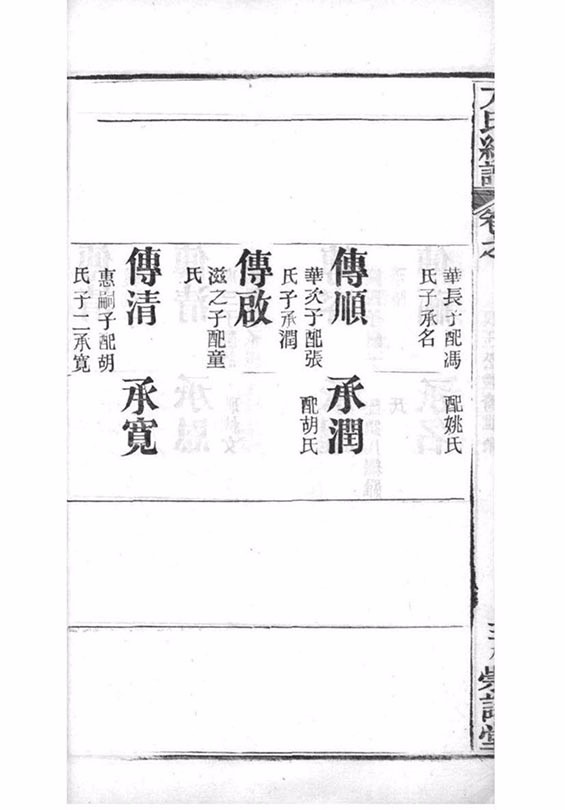 華長子配馮
氏子承名
配姚氏
傳順
華次子配張
氏子承潤
承潤
配胡氏
傳啟
滋之子配童
氏
傳清
惠嗣子配胡
氏子二承寬
承寬
氏總譜
卷之
崇譜堂